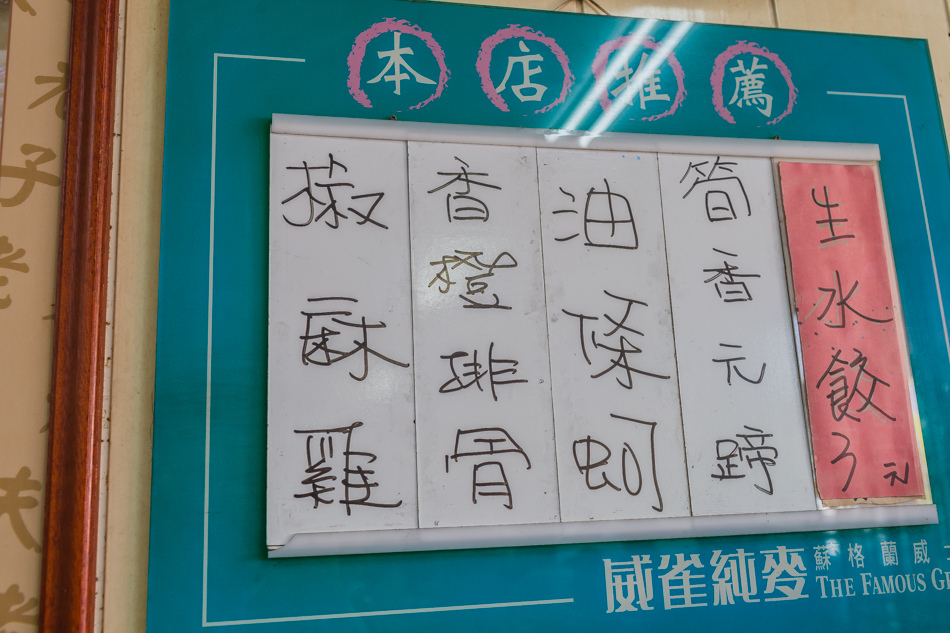 本店推薦
生水餃元
筍香元蹄
油條蚵
香橙排骨
椒酥雞
威雀純麥
蘇格蘭威
THE FAMOUS